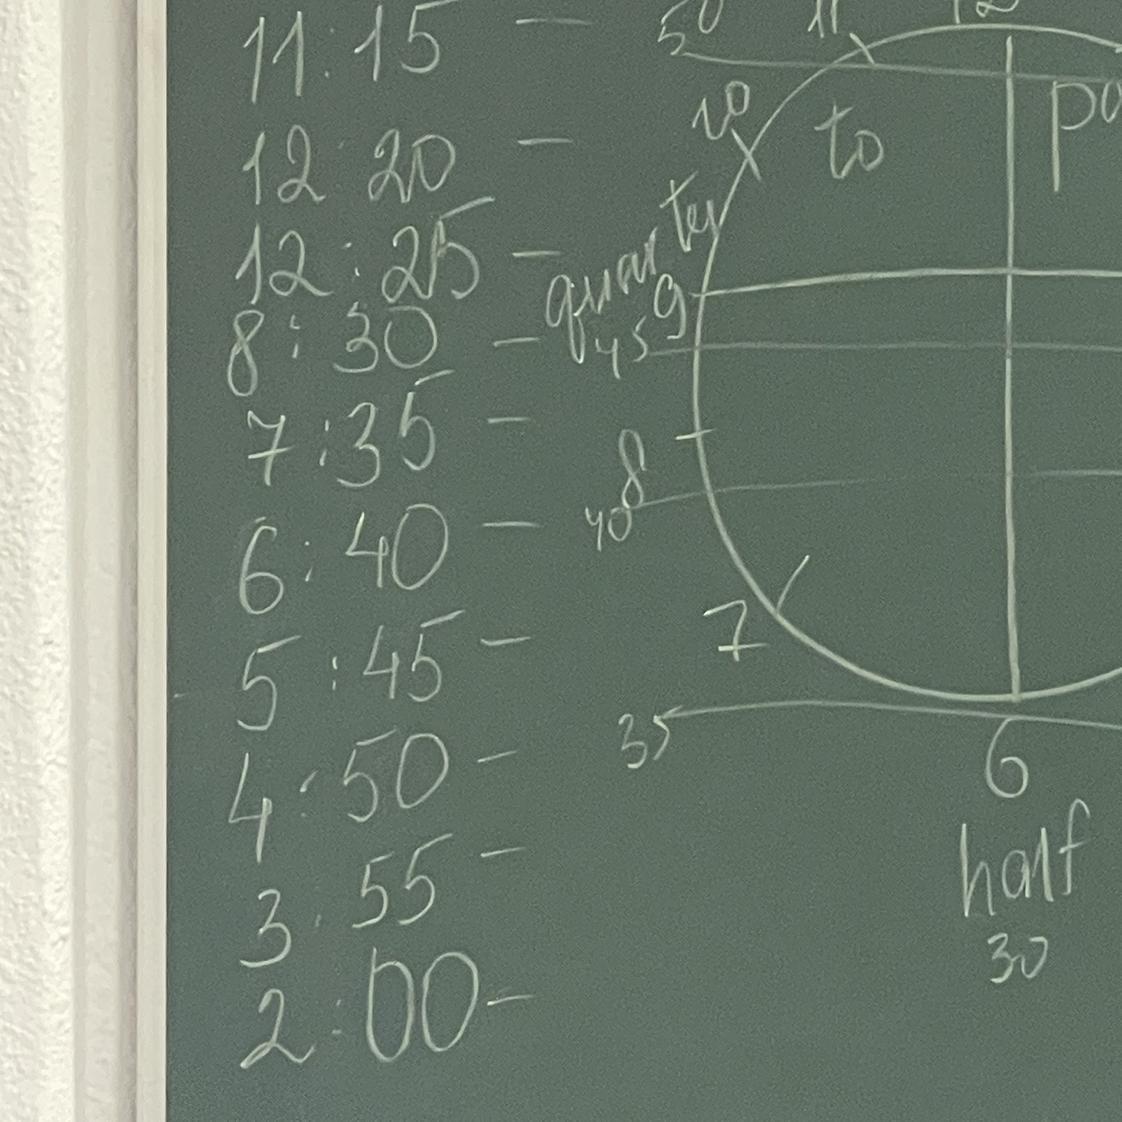 11:15 -
12:20 -
12:25 -
8:30 -
7:35 -
6:40 -
5:45 -
4:50 -
3:55 -
2:00 -
50
11
12
10
to
quarter
9
45
8
40
7
35
6
half
30